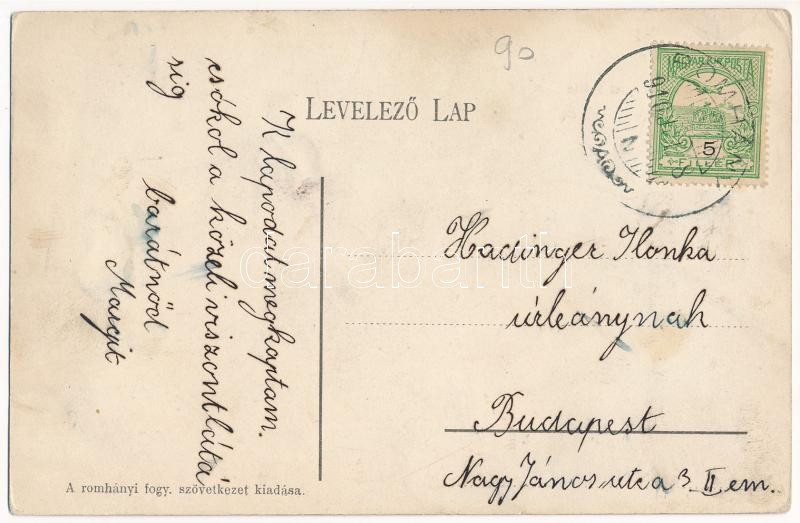 90
LEVELEZŐ LAP
MAGYAR KIR. POSTA
5
FILLÉR
ROMHÁNY
910
K lapodat megkaptam.
csókol a közeli viszontlátá
sig
barátnőd
Margit
Hadinger Ilonka
úrleánynak
Budapest
Nagy János utca 3 II em.
A romhányi fogy. szövetkezet kiadása.
darabanth